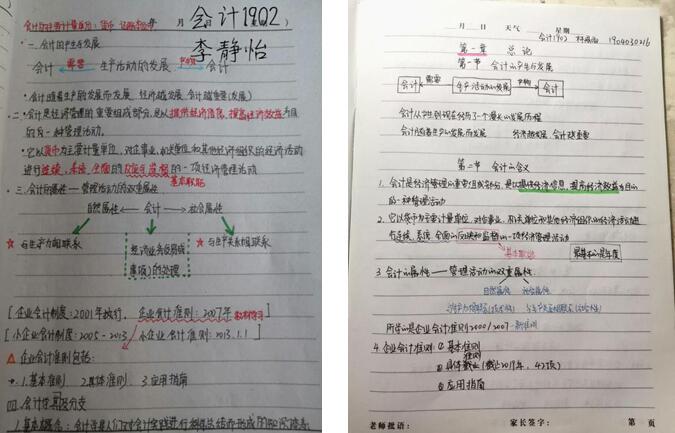 年 月 会计1902
李静怡
一、会计的产生与发展
会计 需要 生产活动的发展 产物 会计
会计随着生产的发展而发展 经济越发展,会计越重要(发展)
二、会计是经济管理的重要组成部分,是以提供经济信息,提高经济效益为目
的的一种管理活动。
它以货币为主要计量单位,对企业事业、机关单位和其他经济组织的经济活动
进行连续、系统、全面的反映和监督的一项经济管理活动
基本职能
三、会计的属性——管理活动的双重属性
自然属性 ← 会计 → 社会属性
☆与生产力相联系
经济业务(交易或
事项)的处理
☆与生产关系相联系
[企业会计制度:2001年执行, 企业会计准则:2007年
[小企业会计制度:2005-2013 小企业会计准则:2013.1.1]
△企业会计准则包括:
1.基本准则 2.具体准则. 3.应用指南
四、会计学及分支
月 日 天气 星期
会计1902 1904030216
第一章 总论
第一节 会计的产生与发展
会计 需要 生产活动的发展 产物 会计
会计从产生到现在经历了一个漫长的发展历程
会计随着生产的发展而发展 经济越发展,会计越重要
第二节 会计的含义
1. 会计是经济管理的重要组成部分,是以提供经济信息,提高经济效益为目的
的一种管理活动
2. 它以货币为主要计量单位,对企事业、机关单位和其他经济组织的经济活动进
行连续、系统、全面的反映和监督的一项经济管理活动
基本职能
3 会计的属性——管理活动的双重属性
自然属性 社会属性
所学的是企业会计准则2000/2007-新准则
4. 企业会计准则:① 基本准则
② 具体准则(截止2019年,42项)
③ 应用指南
老师批语: 家长签字: 第 页